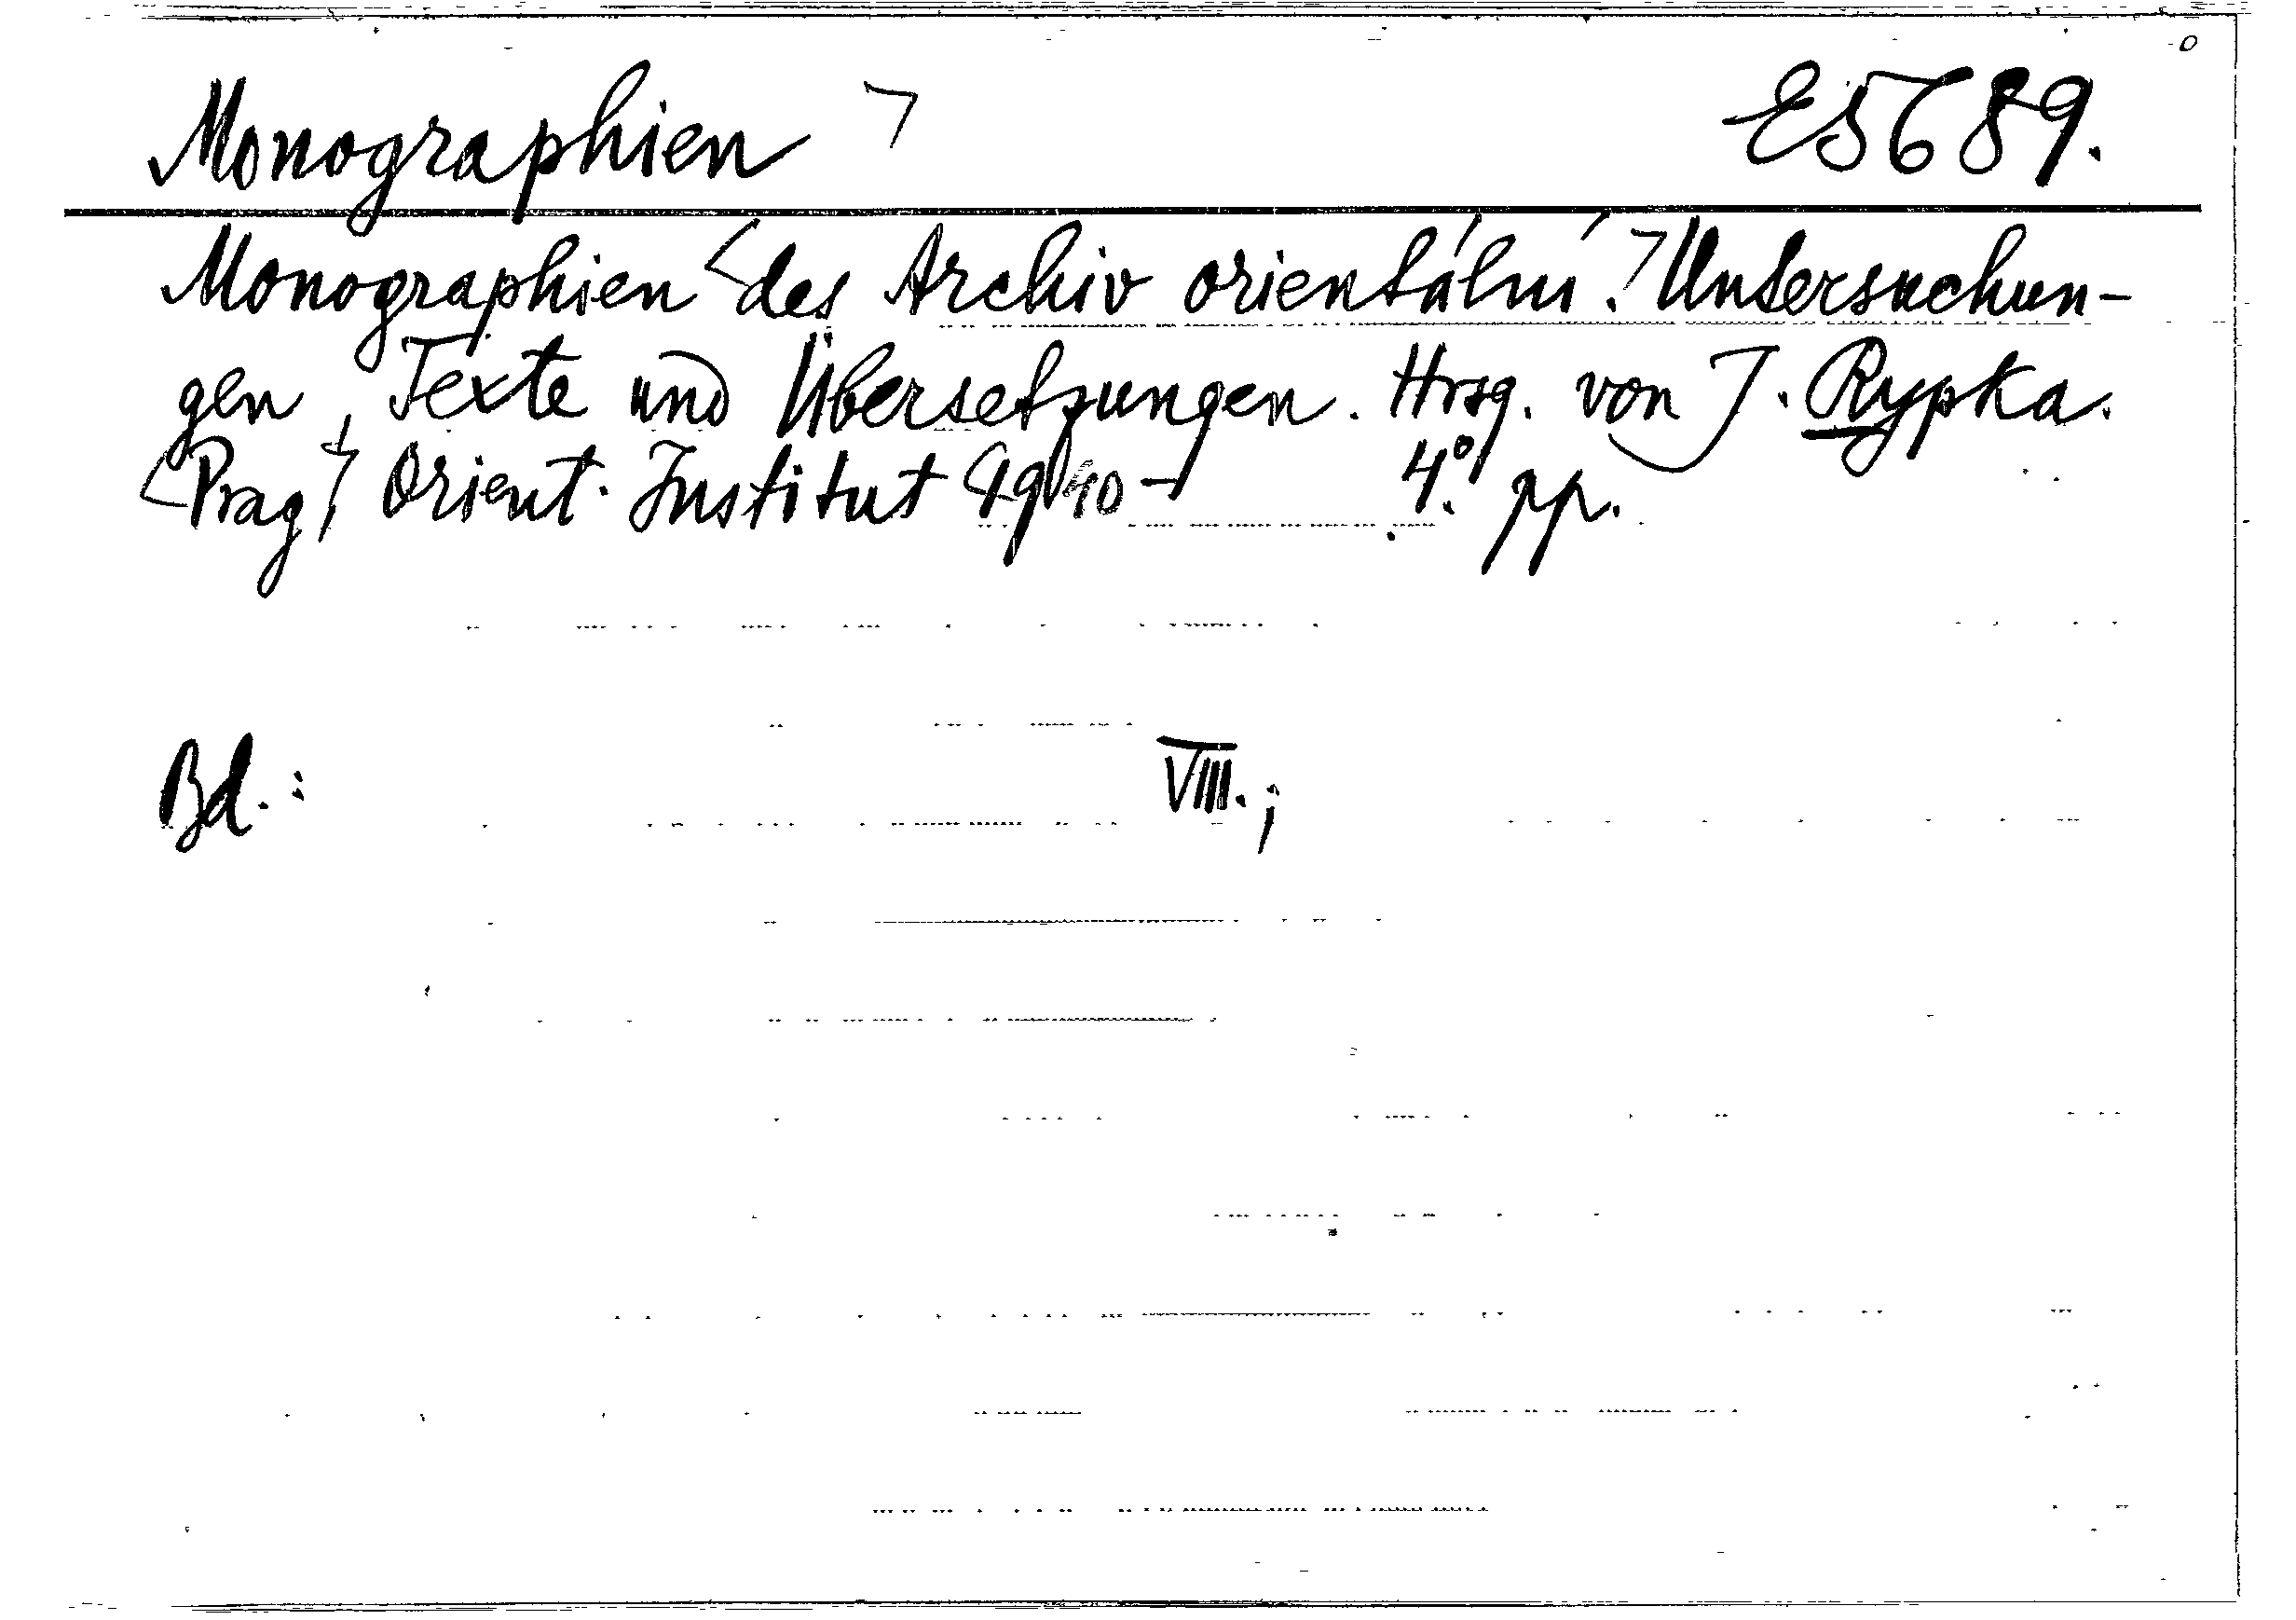 Monographien E5689.
Monographien des Archiv orientální. Untersuchun-
gen, Texte und Übersetzungen. Hrsg. von J. Rypka.
Prag, Orient. Institut 1940- 4°. pp.
Bd.: VIII.;